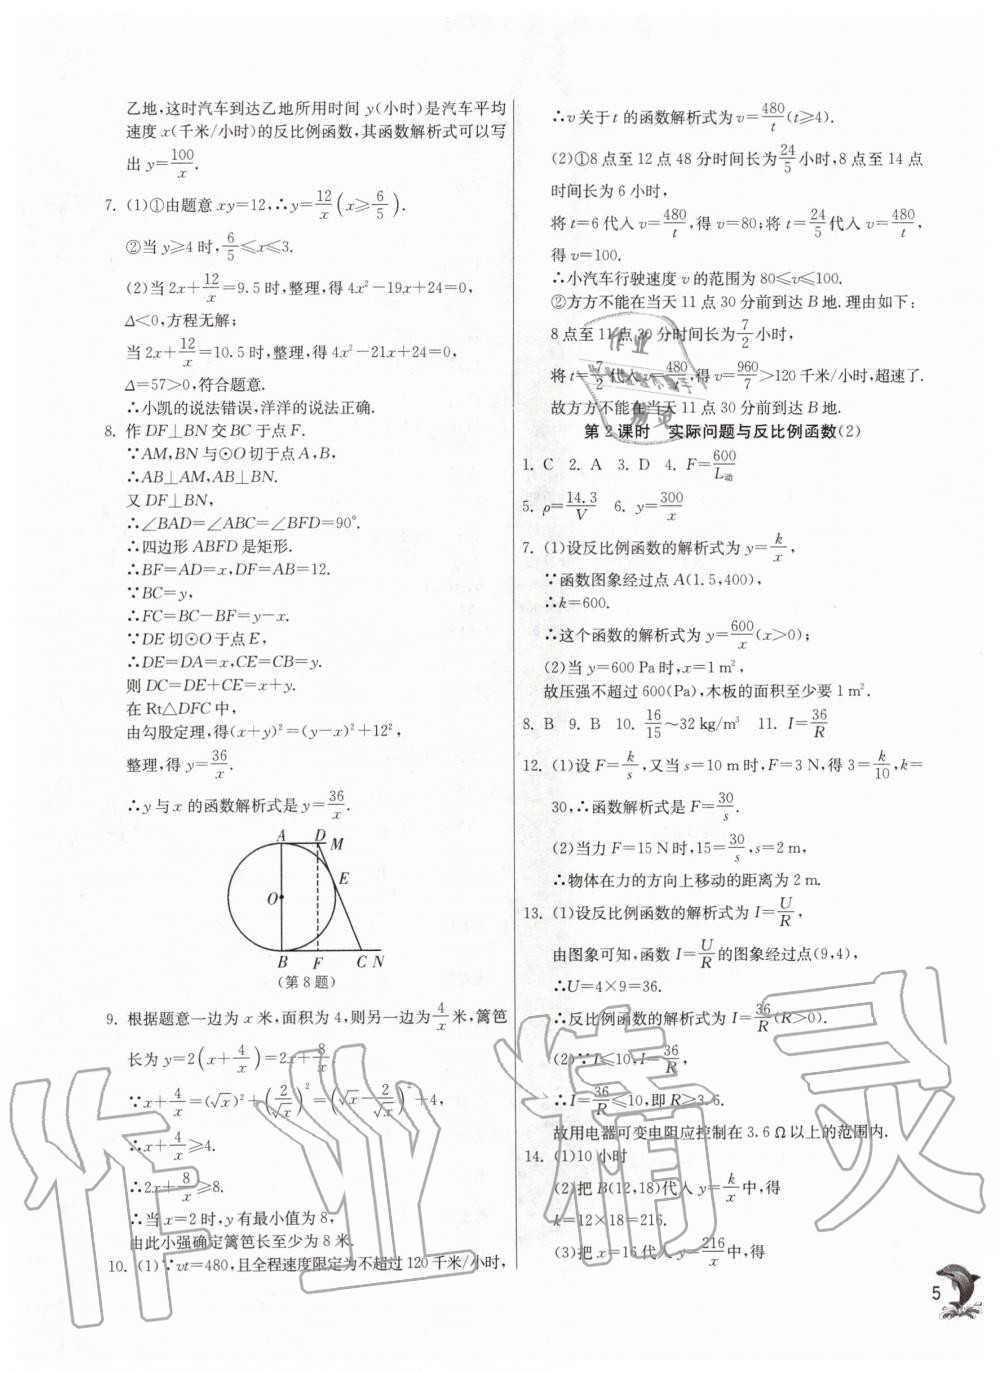 乙地,这时汽车到达乙地所用时间 y(小时)是汽车平均
速度 x(千米/小时)的反比例函数,其函数解析式可以写
出 y=100/x.
7. (1)①由题意 xy=12,∴y=12/x(x≥6/5).
②当 y≥4 时,6/5≤x≤3.
(2)当 2x+12/x=9.5 时,整理,得 4x²-19x+24=0,
Δ<0,方程无解;
当 2x+12/x=10.5 时,整理,得 4x²-21x+24=0,
Δ=57>0,符合题意.
∴小凯的说法错误,洋洋的说法正确.
8. 作 DF⊥BN 交 BC 于点 F.
∵AM,BN 与⊙O 切于点 A,B,
∴AB⊥AM,AB⊥BN.
又 DF⊥BN,
∴∠BAD=∠ABC=∠BFD=90°.
∴四边形 ABFD 是矩形.
∴BF=AD=x,DF=AB=12.
∵BC=y,
∴FC=BC-BF=y-x.
∵DE 切⊙O 于点 E,
∴DE=DA=x,CE=CB=y.
则 DC=DE+CE=x+y.
在 Rt△DFC 中,
由勾股定理,得(x+y)²=(y-x)²+12²,
整理,得 y=36/x.
∴y 与 x 的函数解析式是 y=36/x.
A D M
E
O
B F C N
(第 8 题)
9. 根据题意一边为 x 米,面积为 4,则另一边为4/x米,篱笆
长为 y=2(x+4/x)=2x+8/x.
∵x+4/x=(√x)²+(2/√x)²=(√x-2/√x)²+4,
∴x+4/x≥4.
∴2x+8/x≥8.
∴当 x=2 时,y 有最小值为 8,
由此小强确定篱笆长至少为 8 米.
10. (1)∵vt=480,且全程速度限定为不超过 120 千米/小时,
∴v 关于 t 的函数解析式为 v=480/t(t≥4).
(2)①8 点至 12 点 48 分时间长为24/5小时,8 点至 14 点
时间长为 6 小时,
将 t=6 代入 v=480/t,得 v=80;将 t=24/5代入 v=480/t,
得 v=100.
∴小汽车行驶速度 v 的范围为 80≤v≤100.
②方方不能在当天 11 点 30 分前到达 B 地.理由如下:
8 点至 11 点 30 分时间长为7/2小时,
将 t=7/2代入 v=480/t,得 v=960/7>120 千米/小时,超速了.
故方方不能在当天 11 点 30 分前到达 B 地.
第 2 课时 实际问题与反比例函数(2)
1. C 2. A 3. D 4. F=600/L动
5. ρ=14.3/V 6. y=300/x
7. (1)设反比例函数的解析式为 y=k/x,
∵函数图象经过点 A(1.5,400),
∴k=600.
∴这个函数的解析式为 y=600/x(x>0);
(2)当 y=600 Pa 时,x=1 m²,
故压强不超过 600(Pa),木板的面积至少要 1 m².
8. B 9. B 10. 16/15~32 kg/m³ 11. I=36/R
12. (1)设 F=k/s,又当 s=10 m 时,F=3 N,得 3=k/10,k=
30,∴函数解析式是 F=30/s.
(2)当力 F=15 N 时,15=30/s,s=2 m,
∴物体在力的方向上移动的距离为 2 m.
13. (1)设反比例函数的解析式为 I=U/R,
由图象可知,函数 I=U/R的图象经过点(9,4),
∴U=4×9=36.
∴反比例函数的解析式为 I=36/R(R>0).
(2)∵I≤10,I=36/R,
∴I=36/R≤10,即 R≥3.6.
故用电器可变电阻应控制在 3.6 Ω 以上的范围内.
14. (1)10 小时
(2)把 B(12,18)代入 y=k/x中,得
k=12×18=216.
(3)把 x=16 代入 y=216/x中,得
5
作业精灵